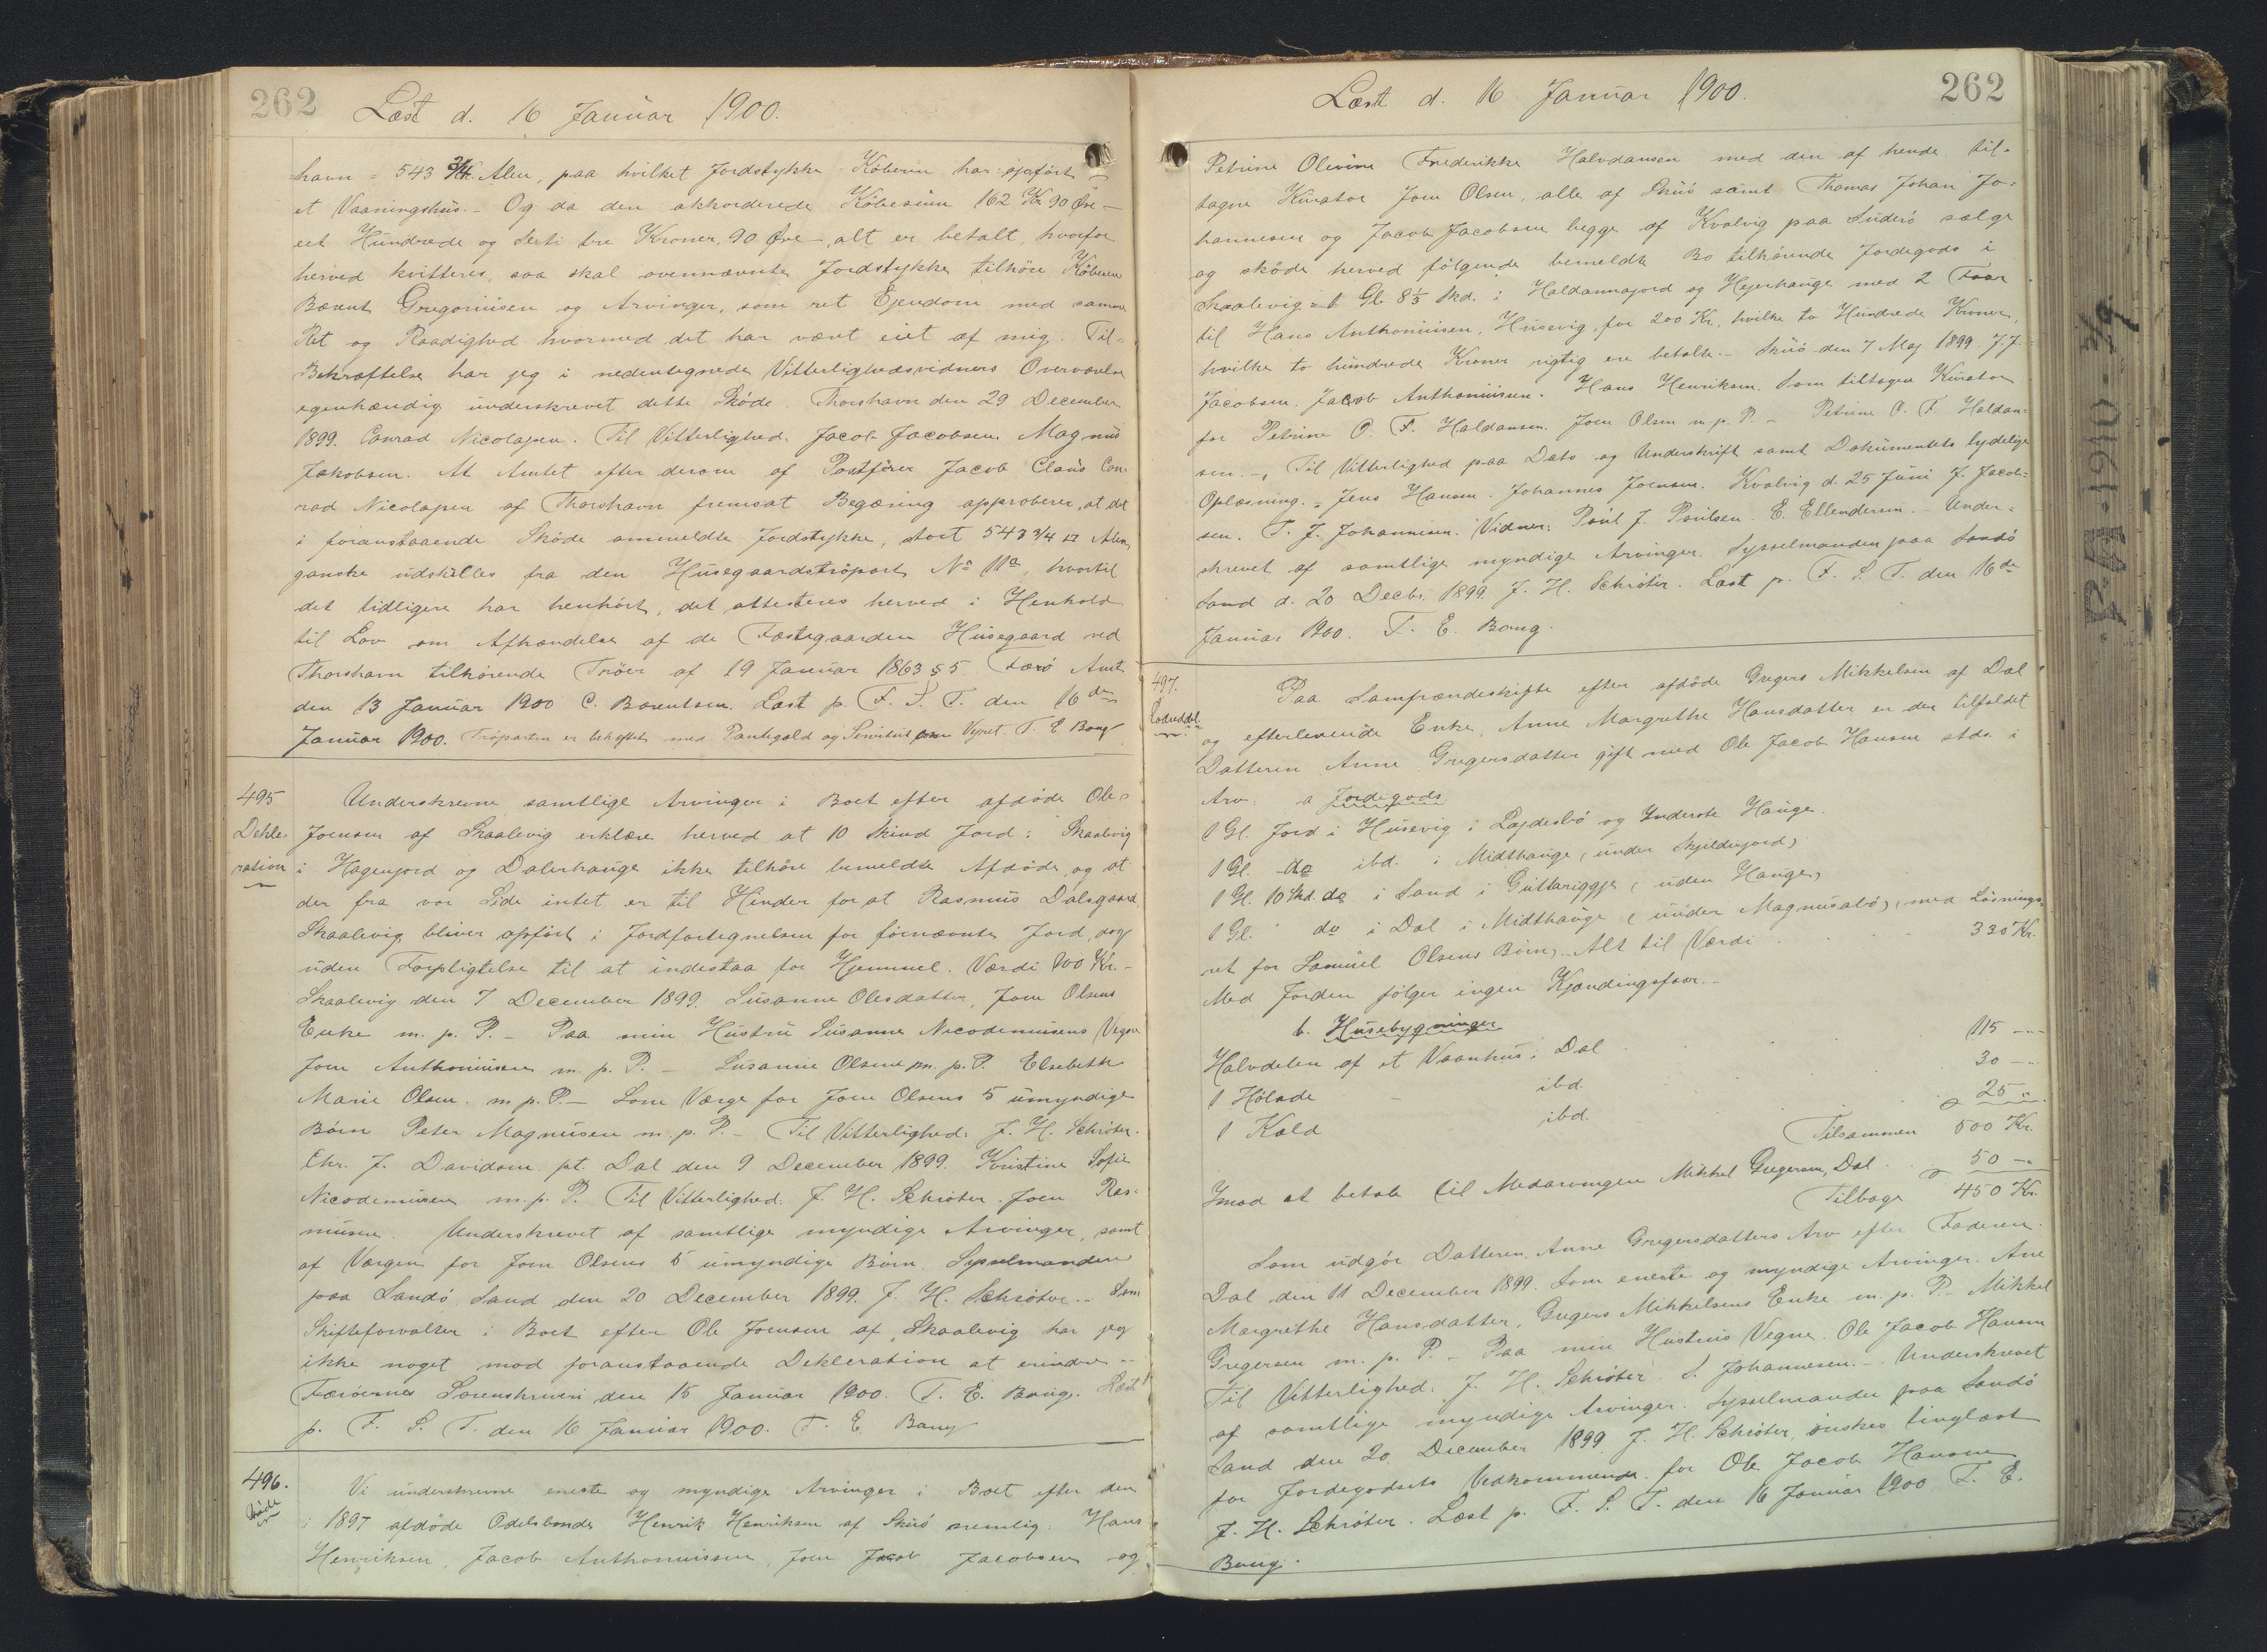 262
Læst d. 16 Januar 1900.
havn = 543 3/4 □ Alen, paa hvilket Jordstykke Köberen har opført
et Vaaningshus. - Og da den akkorderede Köbesum 162 Kr 90 Øre -
eet Hundrede og Seksti tre Kroner, 90 Øre -, alt er betalt, hvorfor
herved kvitteres, saa skal ovennævnte Jordstykke tilhöre Köberen
Bærent Gregoriussen og Arvinger, som ret Ejendom med samme
Ret og Raadighed hvormed det har været eiet af mig. Til
Bekræftelse har jeg i nedentegnede Vitterlighedsvidners Overværelse
egenhændig underskrevet dette Sköde. Thorshavn den 29 December
1899. Conrad Nicolajsen. Til Vitterlighed: Jacob Jacobsen. Magnus
Jakobsen. At Amtet efter derom af Postfører Jacob Claus Con-
rad Nicolajsen af Thorshavn fremsat Begæring approberer, at det
i foranstaaende Sköde ommeldte Jordstykke, stort 543 3/4 □ Alen,
ganske udskilles fra den Husegaardströpart No 11a, hvortil
det tidligere har henhört, det attesteres herved i Henhold
til Lov om Afhændelse af de Fæstegaarden Husegaard ved
Thorshavn tilhörende Tröer af 19 Januar 1863 § 5. Færö Amt
den 13 Januar 1900 C. Bærentsen. Læst p. F. S. T. den 16de
Januar 1900. Tröparten er behæftet med Pantegæld og Servitut om Vejret. T. E Bang
495
Dekle-
ration
Underskrevne samtlige Arvinger i Boet efter afdöde Ole
Joensen af Skaalevig erklære herved at 10 Skind Jord i Skaalevig
i Hagenjord og Dalerhauge ikke tilhöre bemeldte Afdöde, og at
der fra vor Side intet er til Hinder for at Rasmus Dalsgaard
Skaalevig bliver opfört i Jordfortegnelsen for förnævnte Jord, dog
uden Forpligtelse til at indestaa for Hjemmel. Værdi 100 Kr. -
Skaalevig den 7 December 1899. Susanne Olesdatter, Joen Olsens
Enke m. p. P. - Paa min Hustru Susanne Nicodemusens Vegne
Joen Anthoniussen m. p. P. - Susanne Olsen m. p. P. Elsebeth
Marie Olsen. m. p. P. - Som Værge for Joen Olsens 5 umyndige
Börn Peter Magnusen m. p. P. - Til Vitterlighed: J. H. Schröter.
Chr. J. Davidsen. pt. Dal den 9 December 1899. Kristine Sofie
Nicodemusen m. p. P. Til Vitterlighed. J. H. Schröter. Joen Ras-
musen. Underskrevet af samtlige myndige Arvinger, samt
af Værgen for Joen Olsens 5 umyndige Börn. Sysselmanden
paa Sandö Sand den 20 December 1899. J. H. Schröter. - Som
Skifteforvalter i Boet efter Ole Joensen af Skaalevig har jeg
ikke noget mod foranstaaende Dekleration at erindre -
Færöernes Sorenskriveri den 15 Januar 1900. T. E. Bang. Læst
p. F. S. T. den 16 Januar 1900. T. E Bang
496.
Sköde
Vi underskrevne eneste og myndige Arvinger i Boet efter den
i 1897 afdöde Odelsbonde Henrik Henriksen af Skuö nemlig: Hans
Henriksen, Jacob Anthoniussen, Joen Jacob Jacobsen og
262
Læst d. 16 Januar 1900.
Petrine Olevine Frederikke Halvdansen med den af hende til-
tagne Kurator Joen Olsen, alle af Skuö samt Thomas Johan Jo-
hannesen og Jacob Jacobsen begge af Kvalvig paa Suderö sælge
og sköde herved fölgende bemeldte Bo tilhörende Jordegods i
Skaalevig = 1 Gl. 8 1/3 Skd. i Haldannajord og Hejerhauge med 2 Faar
til Hans Anthoniusen, Husevig, for 200 Kr., hvilke to Hundrede Kroner,
hvilke to hundrede Kroner rigtig ere betalte. - Skuö den 7 Maj 1899. J. J.
Jacobsen. Jacob Anthoniussen. Hans Henriksen. Som tiltagen Kurator
for Petrine O. F. Haldansen. Joen Olsen m. p. P. - Petrine O. F. Haldan-
sen. -, Til Vitterlighed paa Dato og Underskrift samt Dokumentets lydelige
Oplæsning. = Jens Hansen. Johannes Joensen. Kvalvig d. 25 Juni J. Jacob-
sen. T. J. Johannesen. Vidner: Poul J. Poulsen. E. Ellendersen. - Under-
skrevet af samtlige myndige Arvinger. Sysselmanden paa Sandö
Sand d. 20 Decbr. 1899. J. H. Schröter. Læst p. F. S. T. den 16de
Januar 1900. T. E. Bang.
497.
Paa Samfrændeskifte efter afdöde Gregers Mikkelsen af Dal
og efterlevende Enke, Anne Margrethe Hansdatter er der tilfaldet
Datteren Anne Gregersdatter gift med Ole Jacob Hansen stds. i
Arv: a Jordegods
1 Gl. Jord i Husevig i Lajdesbö og Yuderste Hauge.
1 Gl. do ibd. i Midthauge (under Skjeldrejord)
1 Gl. 10 Skd. do i Sand i Guttariggje (uden Hauge)
1 Gl. " do i Dal i Midthauge (under Magnusabö), med Lösnings-
ret for Samuel Olsens Börn). Alt til Værdi . . . 330 Kr.
Med Jorden fölger ingen Kjændingsfaar. -
b. Husebygninger
Halvdelen af et Vaanhus i Dal . . . 115 -"-
1 Hölade - ibd. . . . 30 -"-
1 Kald ibd. . . . 25 "
Tilsammen 500 Kr.
Imod at betale til Medarvingen Mikkel Gregersen, Dal . . 50 -"
Tilbage 450 Kr.
Som udgör Datteren, Anne Gregersdatters Arv efter Faderen.
Dal den 11 December 1899. Som eneste og myndige Arvinger. Ane
Margrethe Hansdatter, Gregers Mikkelsens Enke m. p. P. - Mikkel
Gregersen m. p. P. - Paa min Hustrus Vegne. Ole Jacob Hansen
Til Vitterlighed: J. H. Schröter. S. Johannesen. - Underskrevet
af samtlige myndige Arvinger. Sysselmanden paa Sandö
Sand den 20 December 1899. J. H. Schröter, önskes tinglæst
for Jordegodsets Vedkommende for Ole Jacob Hansen
J. H. Schröter. Læst p. F. S. T. den 16 Januar 1900 T. E.
Bang.